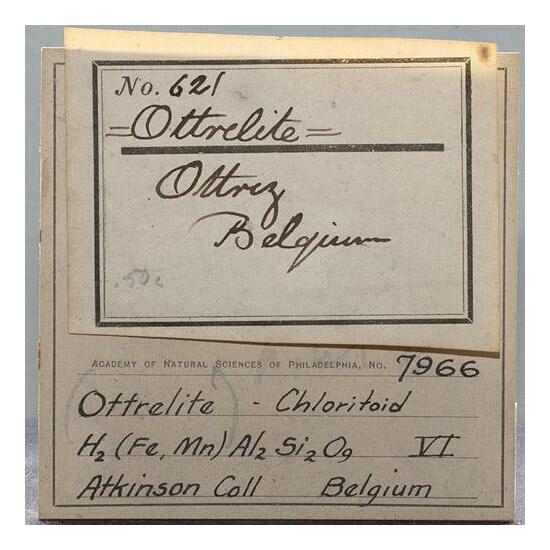 No. 621
=Ottrelite=
Ottrez
Belgium
.50c
ACADEMY OF NATURAL SCIENCES OF PHILADELPHIA, NO. 7966
Ottrelite - Chloritoid
H₂(Fe, Mn) Al₂ Si₂ O₉ VI
Atkinson Coll Belgium